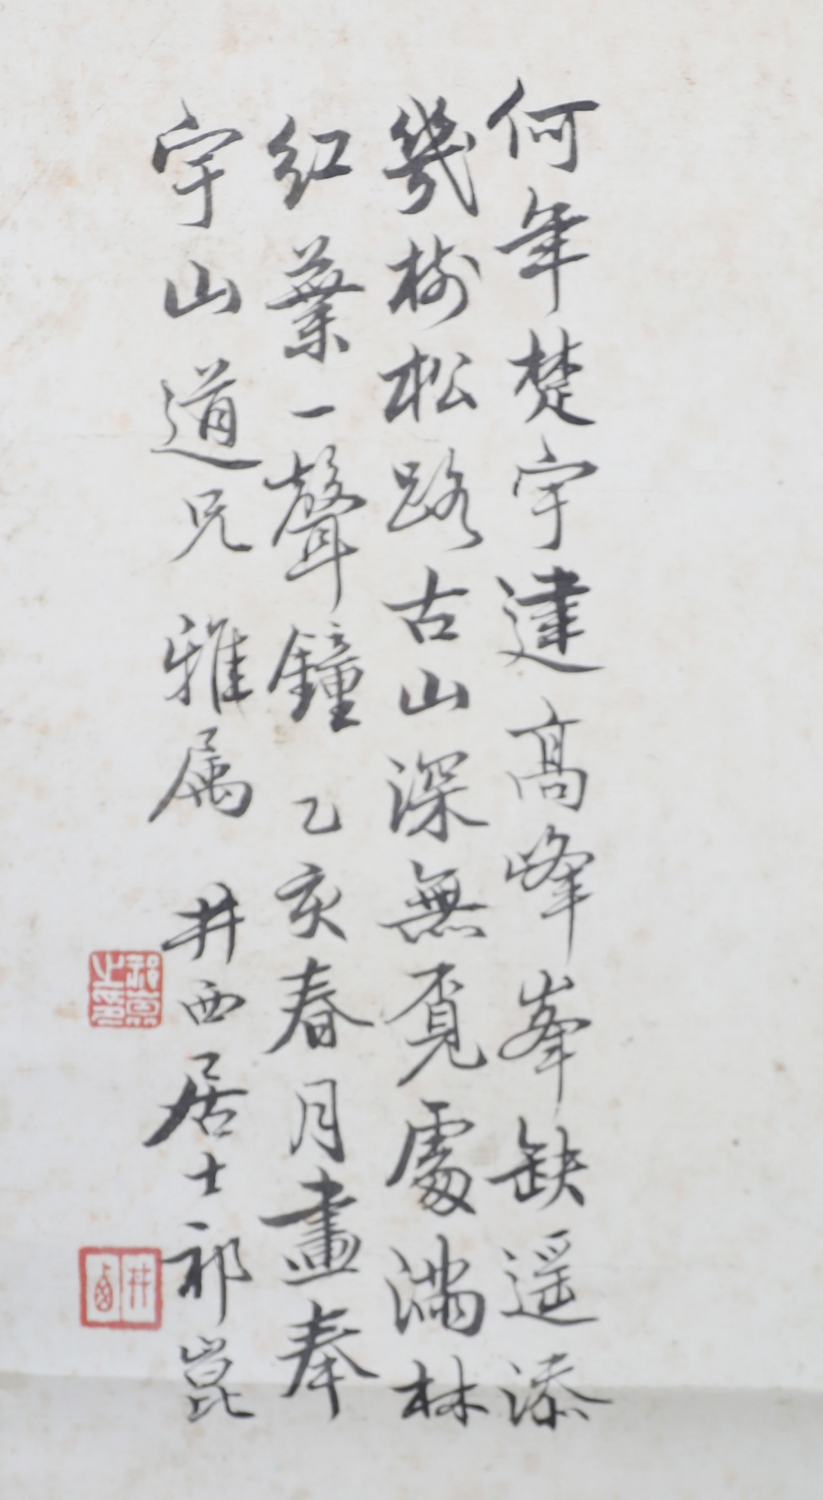 何年楚宇建高峰峯缺遥添
幾樹松路古山深無覓處滿林
红葉一聲鐘乙亥春月畫奉
宇山道兄雅属井西居士祁崑
祁崑之印
井西